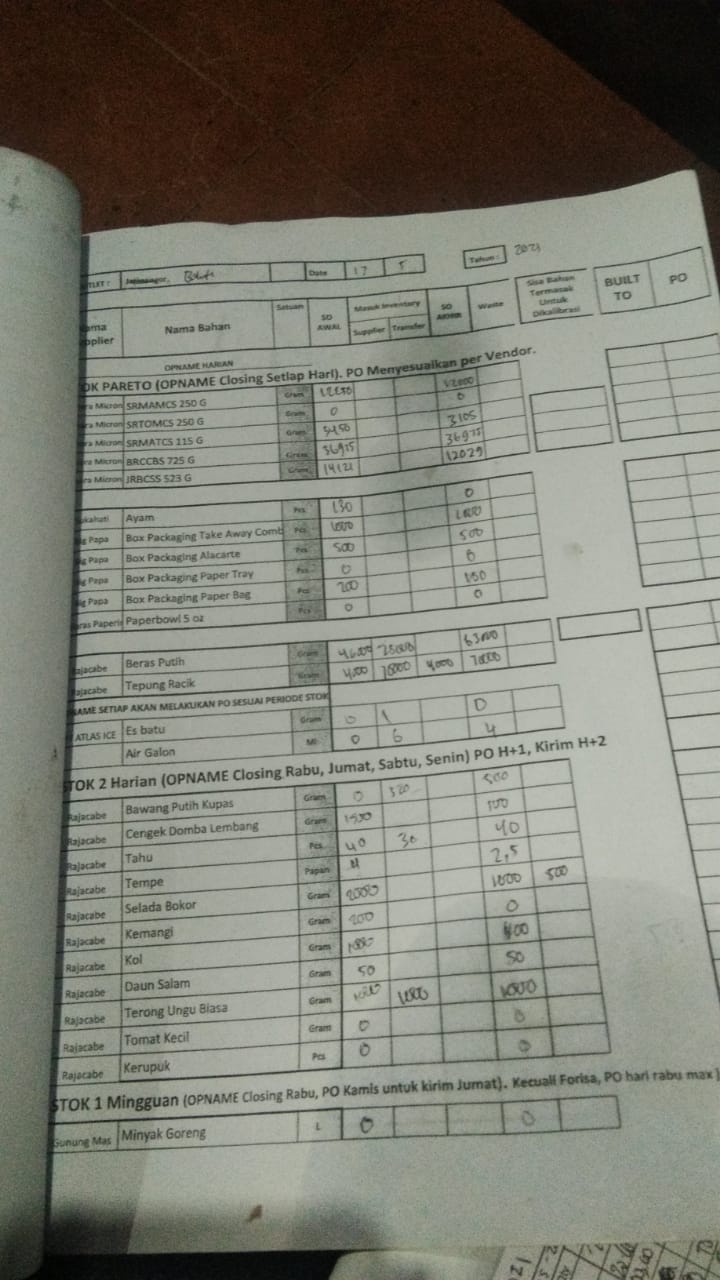 TLET : Jatinangor, Date 17 5 Tahun : 2021
ama pplier Nama Bahan Satuan SO AWAL Masuk Inventory Supplier Transfer SO AKHIR Waste Sisa Bahan Termasak Untuk Dikalibrasi BUILT TO PO
OPNAME HARIAN
OK PARETO (OPNAME Closing Setiap Hari). PO Menyesuaikan per Vendor.
ra Micron SRMAMCS 250 G Gram 12000
ra Micron SRTOMCS 250 G Gram 0 0
ra Micron SRMATCS 115 G Gram 3450 3105
ra Micron BRCCBS 725 G Gram 36975 36975
ra Micron JRBCSS 523 G Gram 14121 12029
ukahati Ayam Pcs 130 0
ig Papa Box Packaging Take Away Comb Pcs 1000 1000
ig Papa Box Packaging Alacarte Pcs 500 500
ig Papa Box Packaging Paper Tray Pcs 0 0
ig Papa Box Packaging Paper Bag Pcs 200 150
aras Paperi Paperbowl 5 oz Pcs 0 0
ajacabe Beras Putih Gram 46000 25000 63000
ajacabe Tepung Racik Gram 4000 70000 4000 70000
NAME SETIAP AKAN MELAKUKAN PO SESUAI PERIODE STOK
ATLAS ICE Es batu Gram 0 1 0
Air Galon Ml 0 6 4
STOK 2 Harian (OPNAME Closing Rabu, Jumat, Sabtu, Senin) PO H+1, Kirim H+2
Rajacabe Bawang Putih Kupas Gram 0 500
Rajacabe Cengek Domba Lembang Gram 1500 100
Rajacabe Tahu Pcs 40 30 40
Rajacabe Tempe Papan 4 2,5
Rajacabe Selada Bokor Gram 2000 1000 500
Rajacabe Kemangi Gram 200 0
Rajacabe Kol Gram 1000 400
Rajacabe Daun Salam Gram 50 50
Rajacabe Terong Ungu Biasa Gram 1000 1000 1000
Rajacabe Tomat Kecil Gram 0 0
Rajacabe Kerupuk Pcs 0 0
STOK 1 Mingguan (OPNAME Closing Rabu, PO Kamis untuk kirim Jumat). Kecuali Forisa, PO hari rabu max
Gunung Mas Minyak Goreng L 0 0